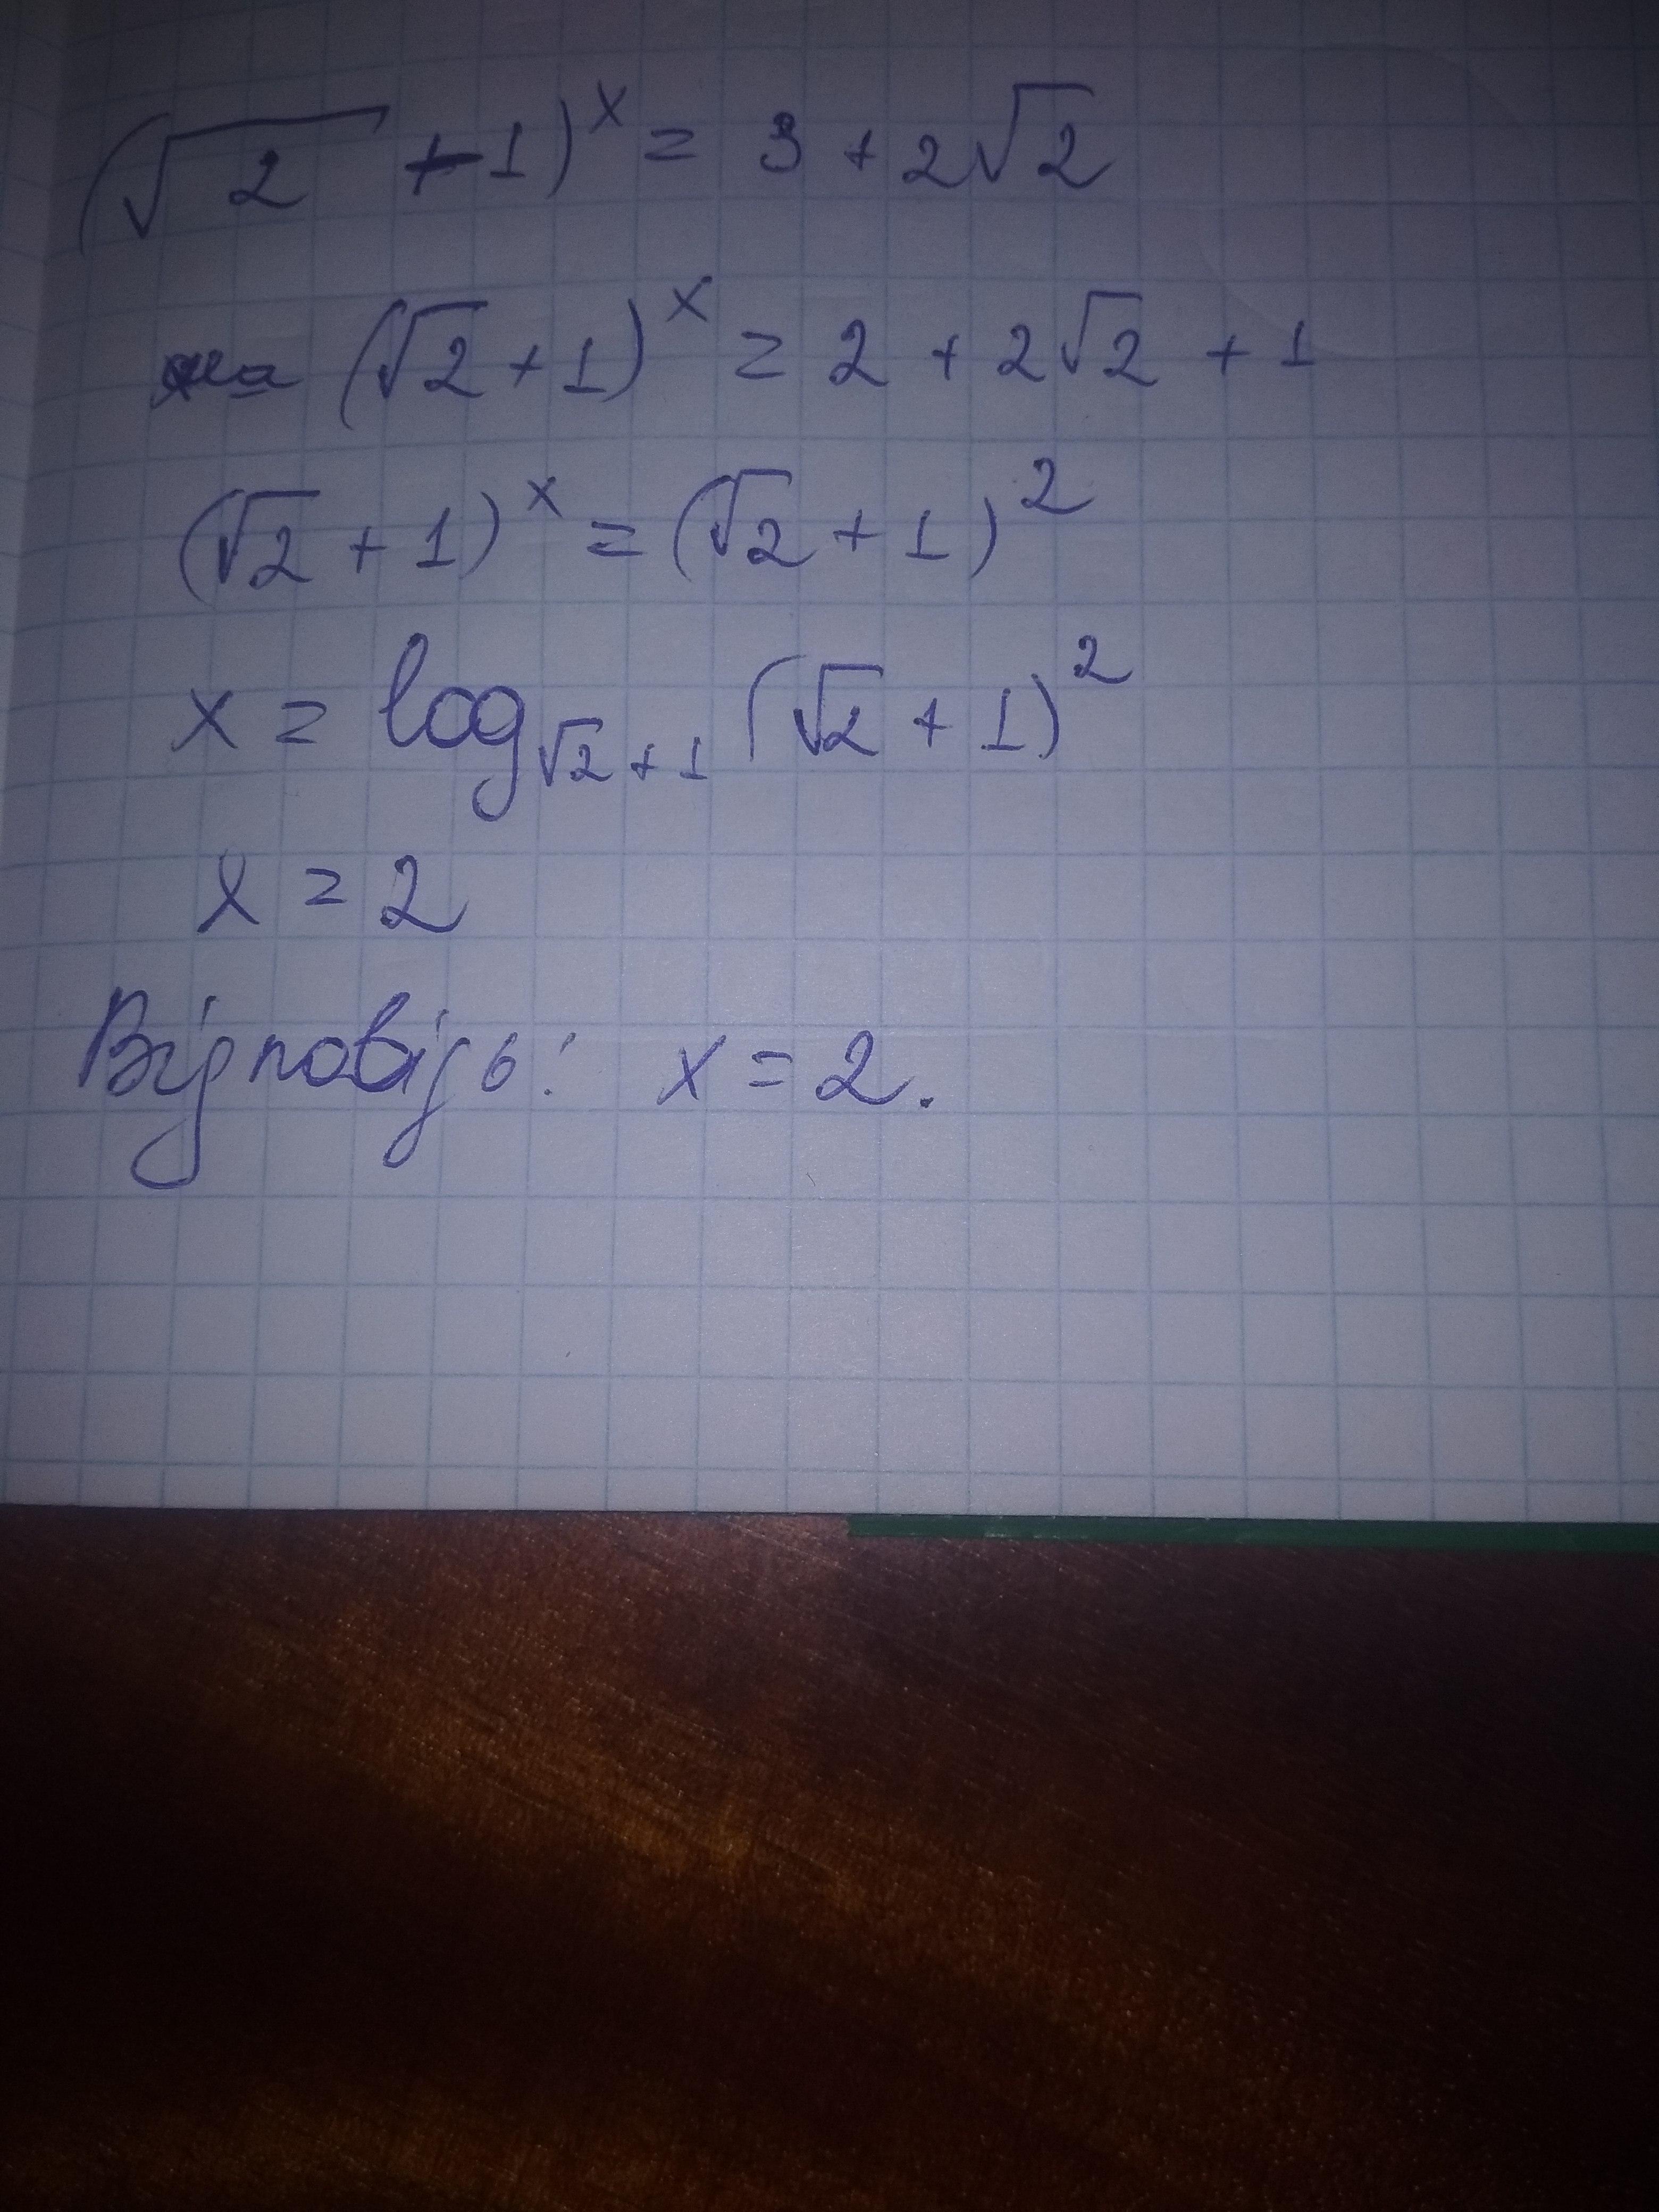 (√2 + 1)^x = 3 + 2√2
(√2 + 1)^x = 2 + 2√2 + 1
(√2 + 1)^x = (√2 + 1)^2
x = log_{√2 + 1} (√2 + 1)^2
x = 2
Відповідь: x = 2.